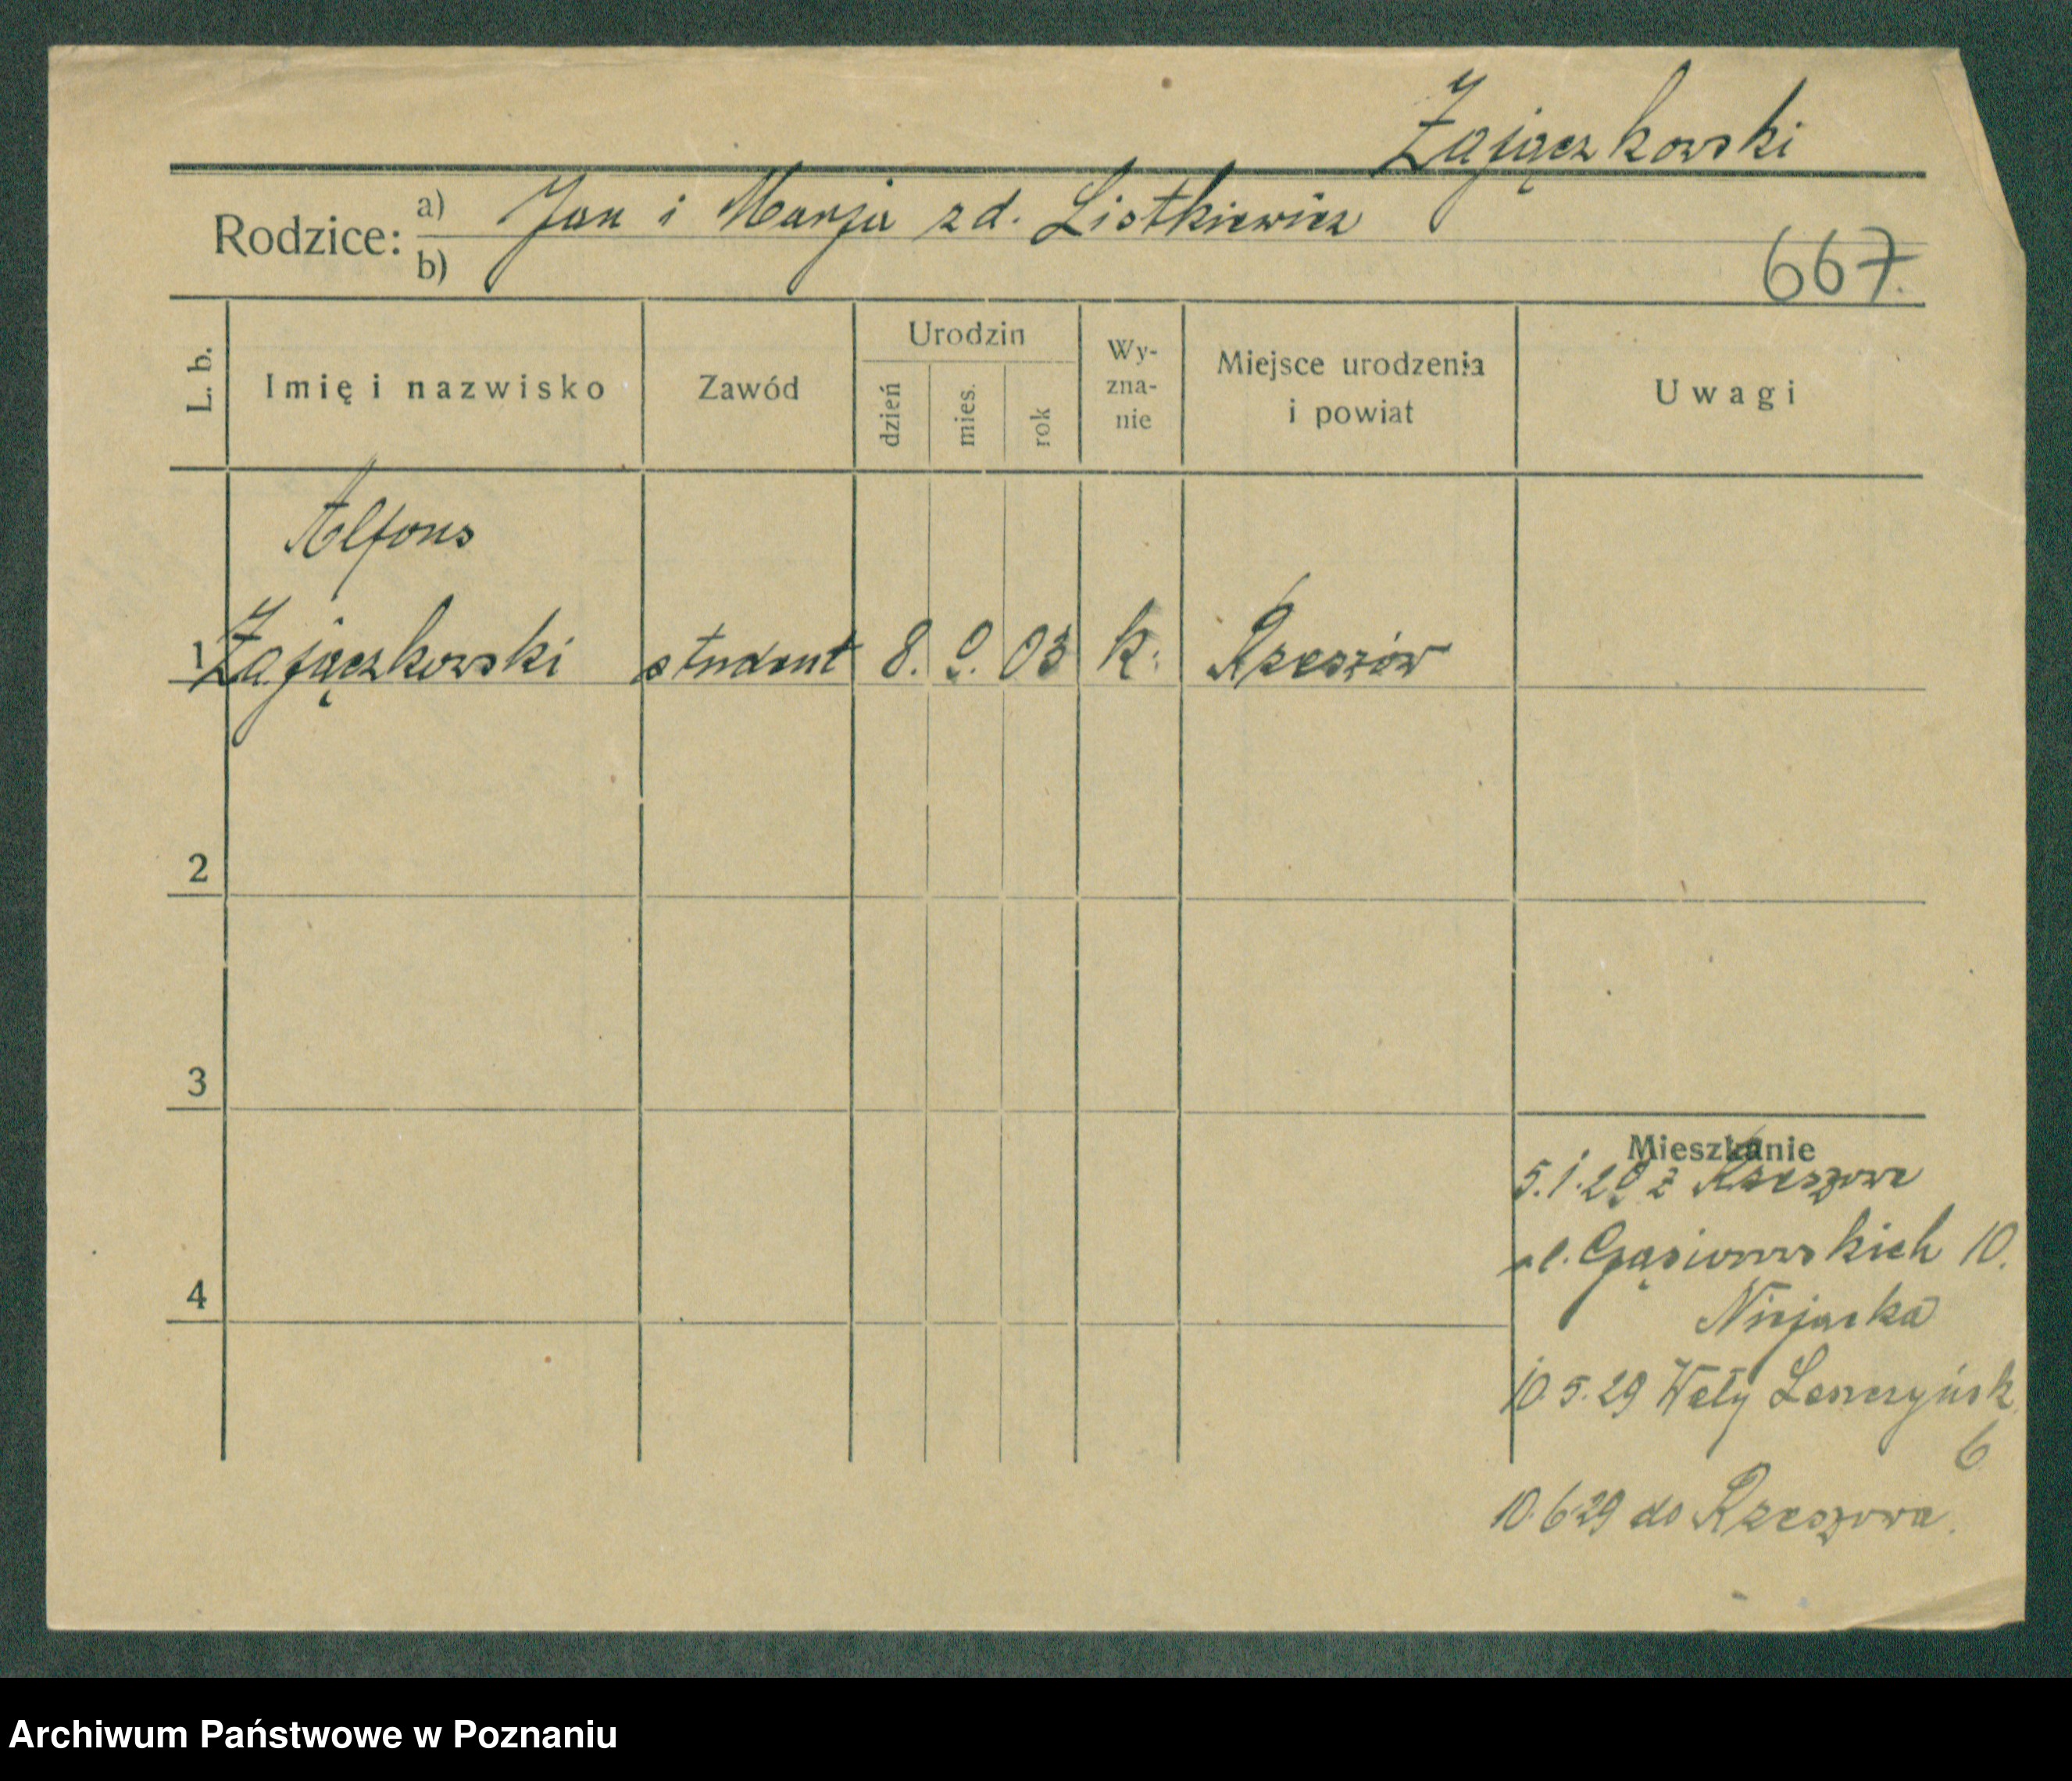 Zajączkowski
Rodzice: a) Jan i Marja zd. Listkiewicz
b)
667.
L. b.
Imię i nazwisko
Zawód
Urodzin
dzień
mies.
rok
Wy-
zna-
nie
Miejsce urodzenia
i powiat
Uwagi
Alfons
1 Zajączkowski student 8. 9. 03 k. Rzeszów
2
3
4
Mieszkanie
5.1.29 z Rzeszowa
ul. Gąsiorowskich 10.
10.5.29 Wały Leszczyńsk.
6
10.6.29 do Rzeszowa.
Archiwum Państwowe w Poznaniu